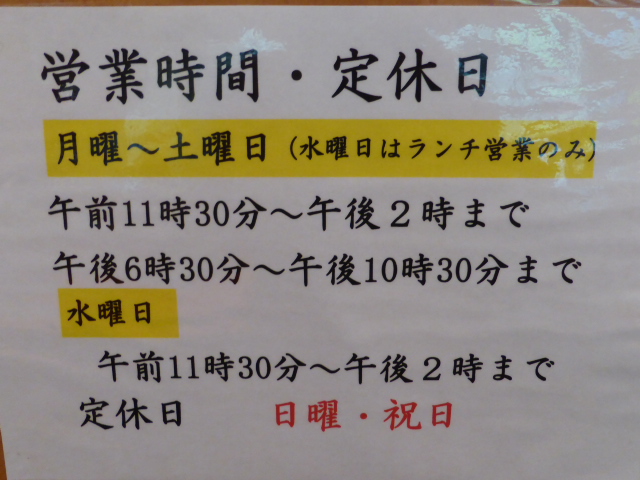 営業時間・定休日
月曜～土曜日（水曜日はランチ営業のみ）
午前11時30分～午後２時まで
午後6時30分～午後10時30分まで
水曜日
午前11時30分～午後２時まで
定休日　日曜・祝日